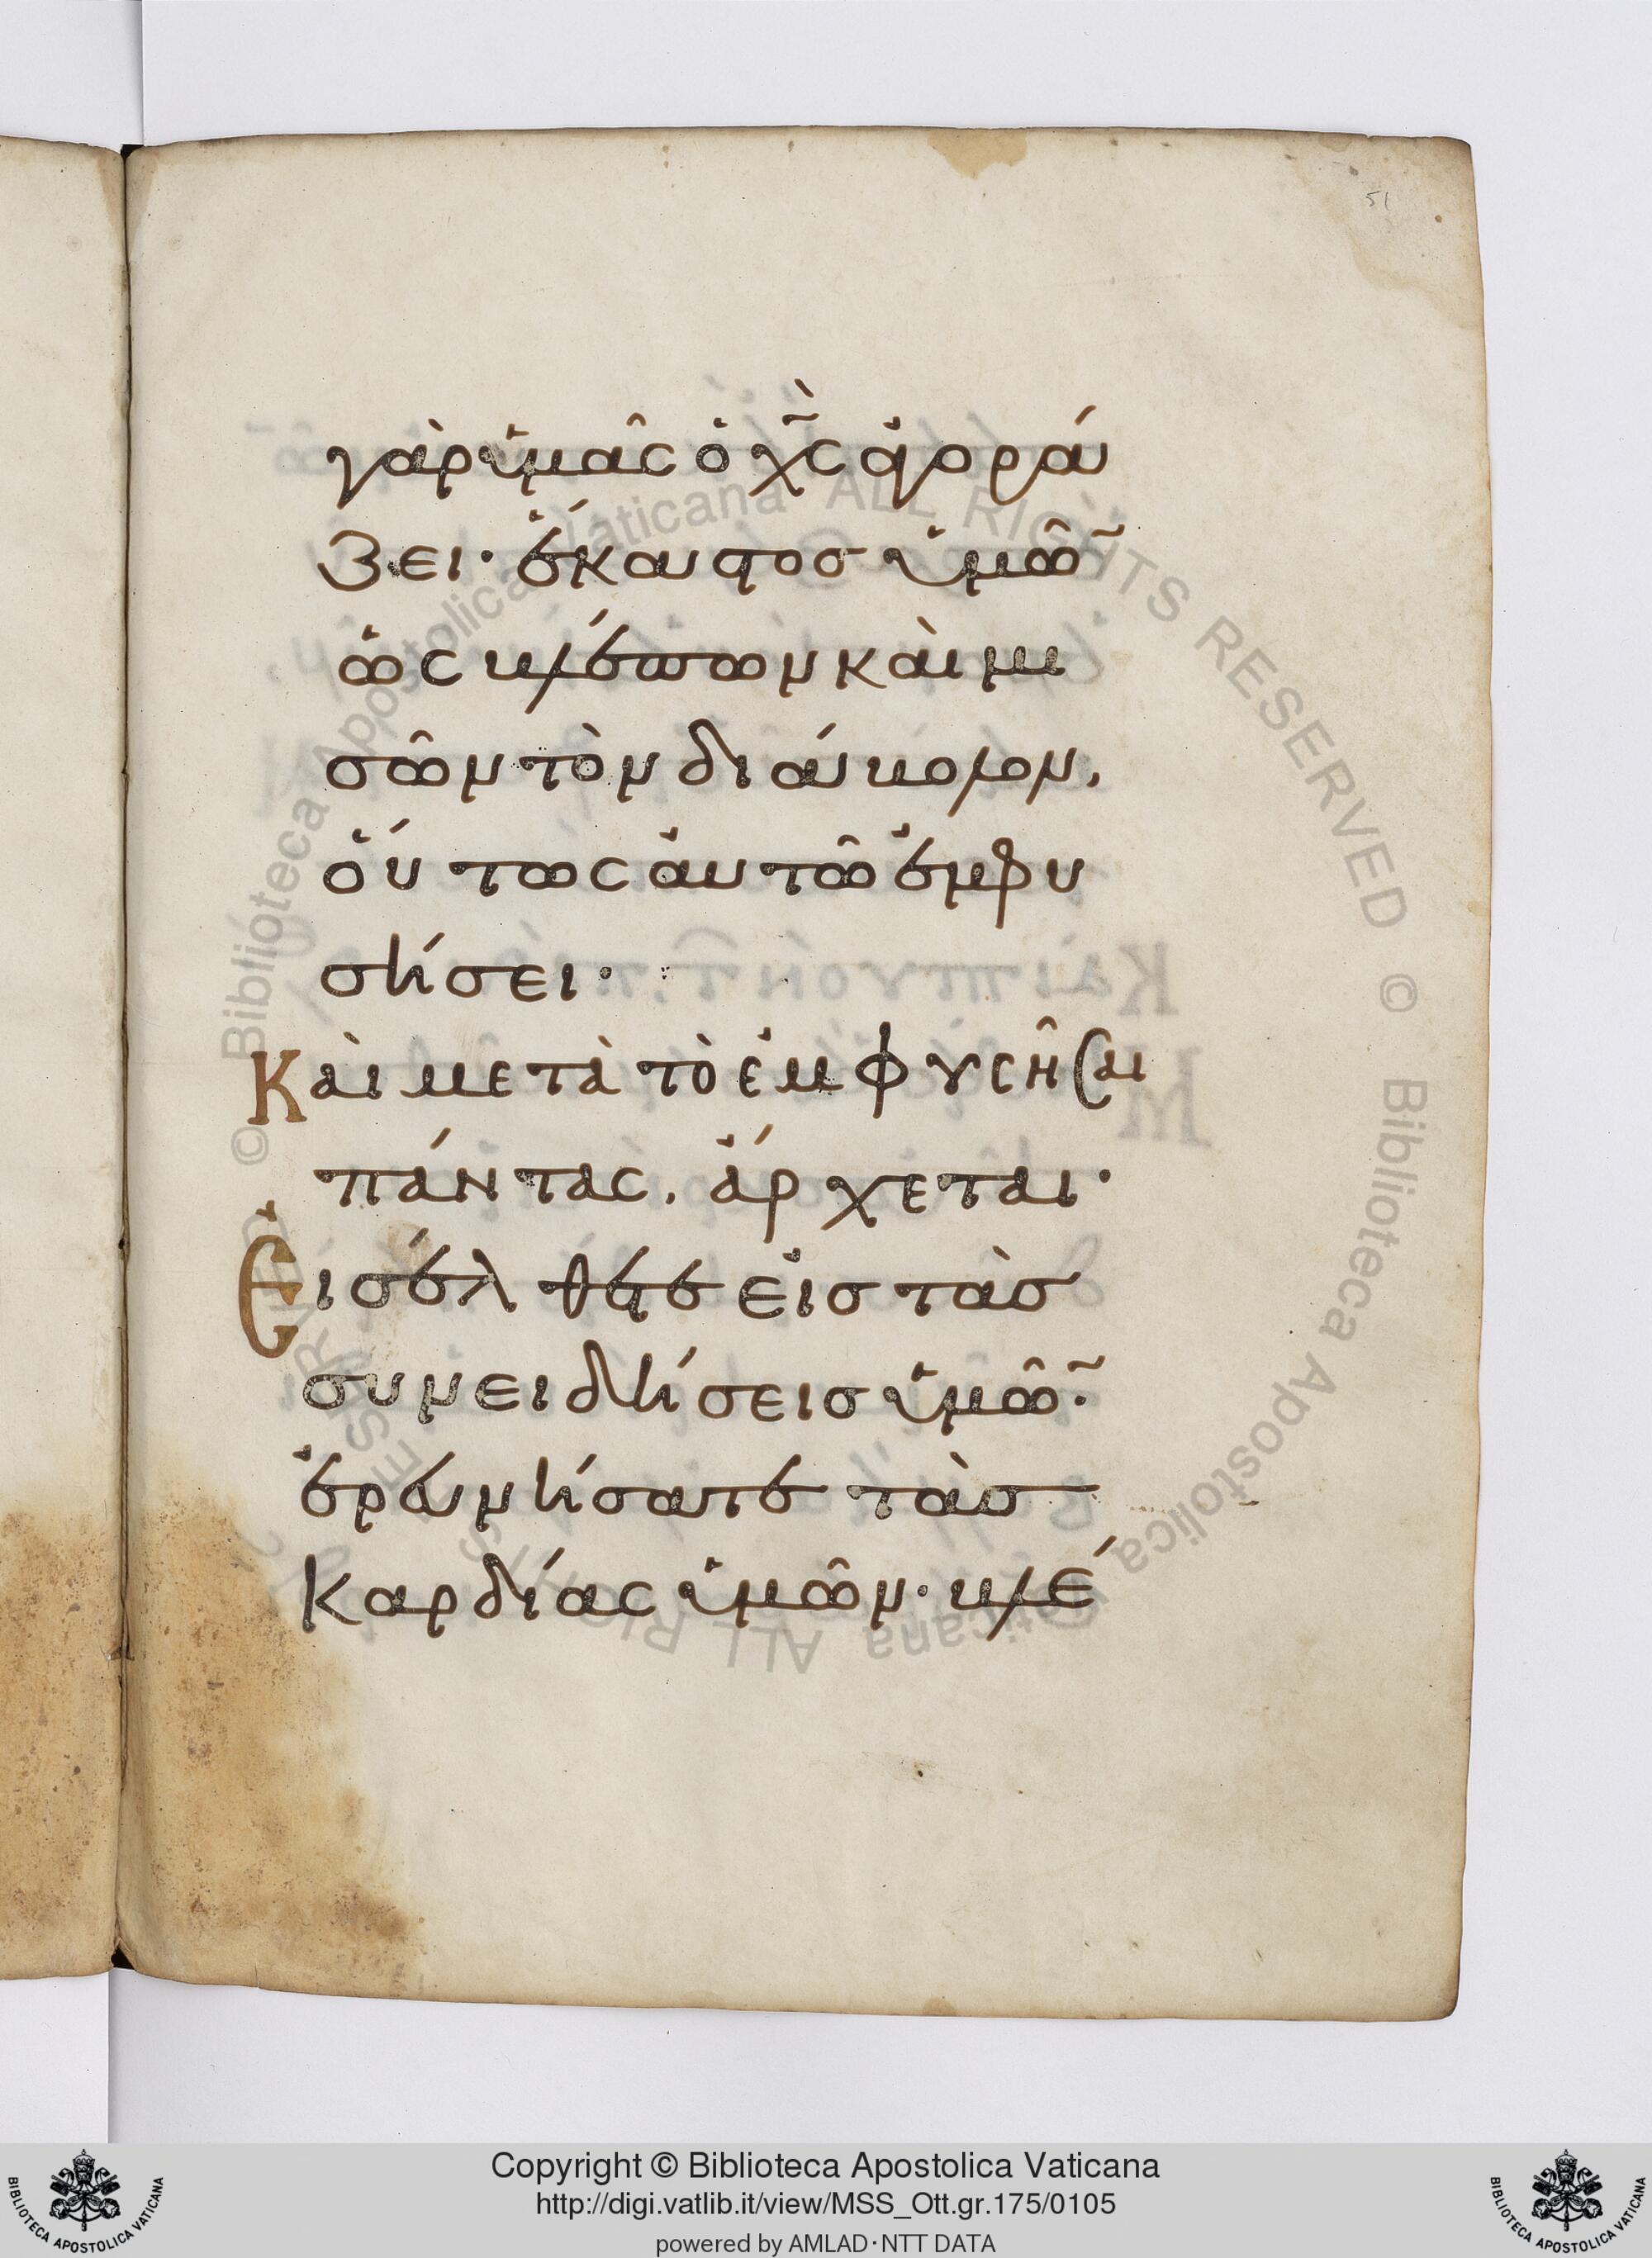 51
γὰρ ὑμᾶς ὁ χ̅ς̅ ἀγορά
ζει· ἕκαστος ὑμῶ̅
ὡς βλέπων καὶ μι
σῶν τὸν διάβολον,
οὕτως αὐτῶ ἐμφυ
σήσει·
Καὶ μετὰ τὸ ἐμφυσῆσαι
πάντας, ἄρχεται·
Εἰσέλθετε εἰς τὰς
συνειδήσεις ὑμῶ̅·
ἐρευνήσατε τὰς
καρδίας ὑμῶν· βλέ
© Biblioteca Apostolica Vaticana ALL RIGHTS RESERVED © Biblioteca Apostolica Vaticana ALL RIGHTS RESERVED
Copyright © Biblioteca Apostolica Vaticana
http://digi.vatlib.it/view/MSS_Ott.gr.175/0105
powered by AMLAD·NTT DATA
BIBLIOTECA APOSTOLICA VATICANA
BIBLIOTECA APOSTOLICA VATICANA